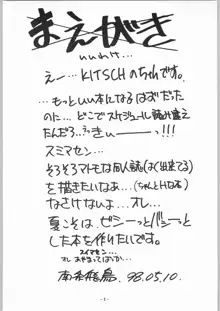 まえがき
いいわけ…
えー…KITSCHのちゃんです。
…もっといい本になるはずだった
のに…どこでスケジュール読み違え
たんだろ…うきぃーーっ!!!
スミマセン…
そろそろマトモな同人誌(よく出来てる)
を描きたいなあ…(ちゃんとHな本)
なさけないよ…オレ…
夏こそは、ビシーっとバシーっと
した本を作りたいです。
スイマセン…
オレ あやまってばっか…
98.05.10
-2-